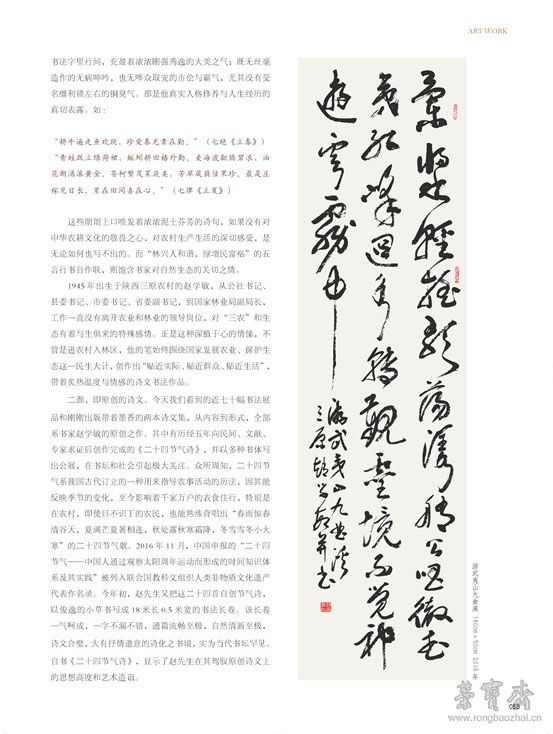 ART WORK
书法字里行间，充盈着浓浓刚强秀逸的大美之气；既无丝毫
造作的无病呻吟，也无哗众取宠的市侩与霸气，尤其没有受
名缰利锁左右的铜臭气。那是他真实人格修养与人生经历的
真切表露。如：
“耕牛遍走鱼欢跳，珍爱春光贵在勤。”（七绝《立春》）
“青蛙跃立绿荷裙，蚯蚓耕田格外勤。麦海波翻腾碧浪，油
花潮涌滚黄金。苍柯繁茂菜蔬美，芳草葳蕤佳果珍。最是庄
稼见日长，累在田间喜在心。”（七律《立夏》）
这些朗朗上口喷发着浓浓泥土芬芳的诗句，如果没有对
中华农耕文化的敬畏之心，对农村生产生活的深切感受，是
无论如何也写不出的。而“林兴人和谐，绿增民富裕”的五
言行书自作联，则饱含书家对自然生态的关切之情。
1945 年出生于陕西三原农村的赵学敏，从公社书记、
县委书记、市委书记、省委副书记，到国家林业局副局长，
工作一直没有离开农业和林业的领导岗位，对“三农”和生
态有着与生俱来的特殊感情。正是这种深植于心的情愫，不
管是进农村入林区，他的笔始终围绕国家发展农业、保护生
态这一民生大计，创作出“贴近实际、贴近群众、贴近生活”，
带着炙热温度与情感的诗文书法作品。
二源，即原创的诗文。今天我们看到的近七十幅书法展
品和刚刚出版带着墨香的两本诗文集，从内容到形式，全部
系书家赵学敏的原创之作。其中有历经五年向民间、文献、
专家求证后创作完成的《二十四节气诗》，并以多种书体写
出公展，在书坛和社会引起极大关注。众所周知，二十四节
气系我国古代订立的一种用来指导农事活动的历法，因其能
反映季节的变化，至今影响着千家万户的衣食住行，特别是
在农村，即使目不识丁的农民，也能熟练背唱出“春雨惊春
清谷天，夏满芒夏暑相连，秋处露秋寒霜降，冬雪雪冬小大
寒”的二十四节气歌。2016 年 11 月，中国申报的“二十四
节气——中国人通过观察太阳周年运动而形成的时间知识体
系及其实践”被列入联合国教科文组织人类非物质文化遗产
代表作名录。今年初，赵先生又把这二十四首自创节气诗，
以俊逸的小草书写成 18 米长 0.5 米宽的书法长卷。该长卷
一气呵成，一字不漏不错，通篇流畅至极，自然清新至极，
诗文合璧，大有抒情遣意的诗化之书境，实为当代书坛罕见。
自书《二十四节气诗》，显示了赵先生在其驾驭原创诗文上
的思想高度和艺术造诣。
游武夷山九曲溪
游武夷山九曲溪 180cm×50cm 2016 年
荣宝斋
053
www.rongbaozhai.cn